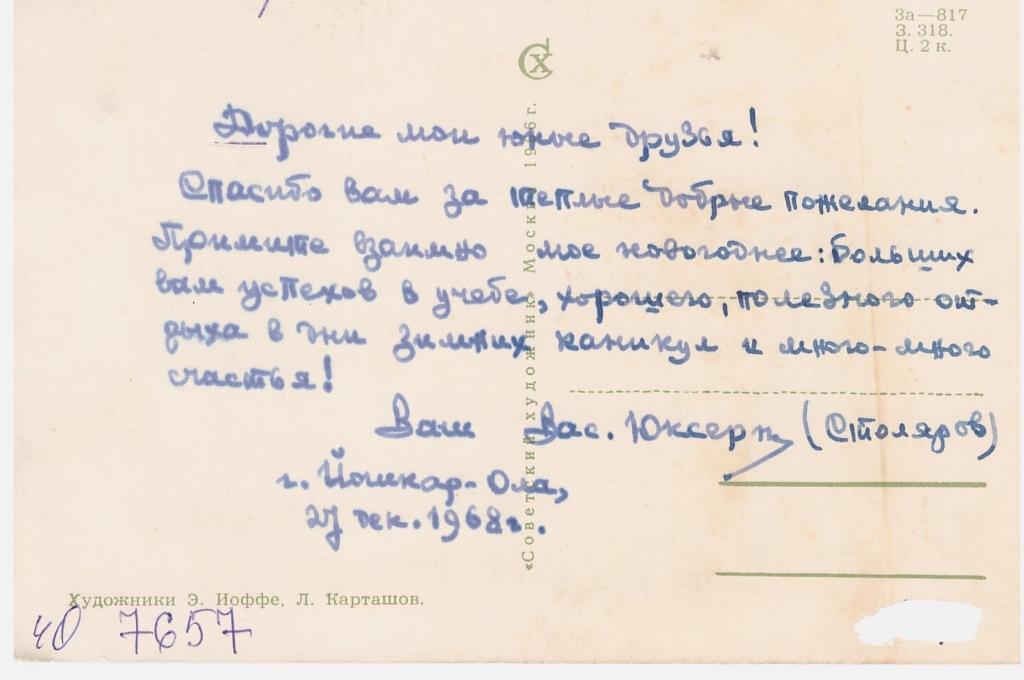 За—817
З. 318.
Ц. 2 к.
СХ
Дорогие мои юные друзья!
Спасибо вам за теплые добрые пожелания.
Примите взаимно мое новогоднее: Больших
вам успехов в учебе, хорошего, полезного от-
дыха в дни зимних каникул и много-много
счастья!
Ваш Вас. Юксерн (Столяров)
г. Йошкар-Ола,
27 дек. 1968 г.
«Советский художник» Москва 1966 г.
Художники Э. Иоффе, Л. Карташов.
7657